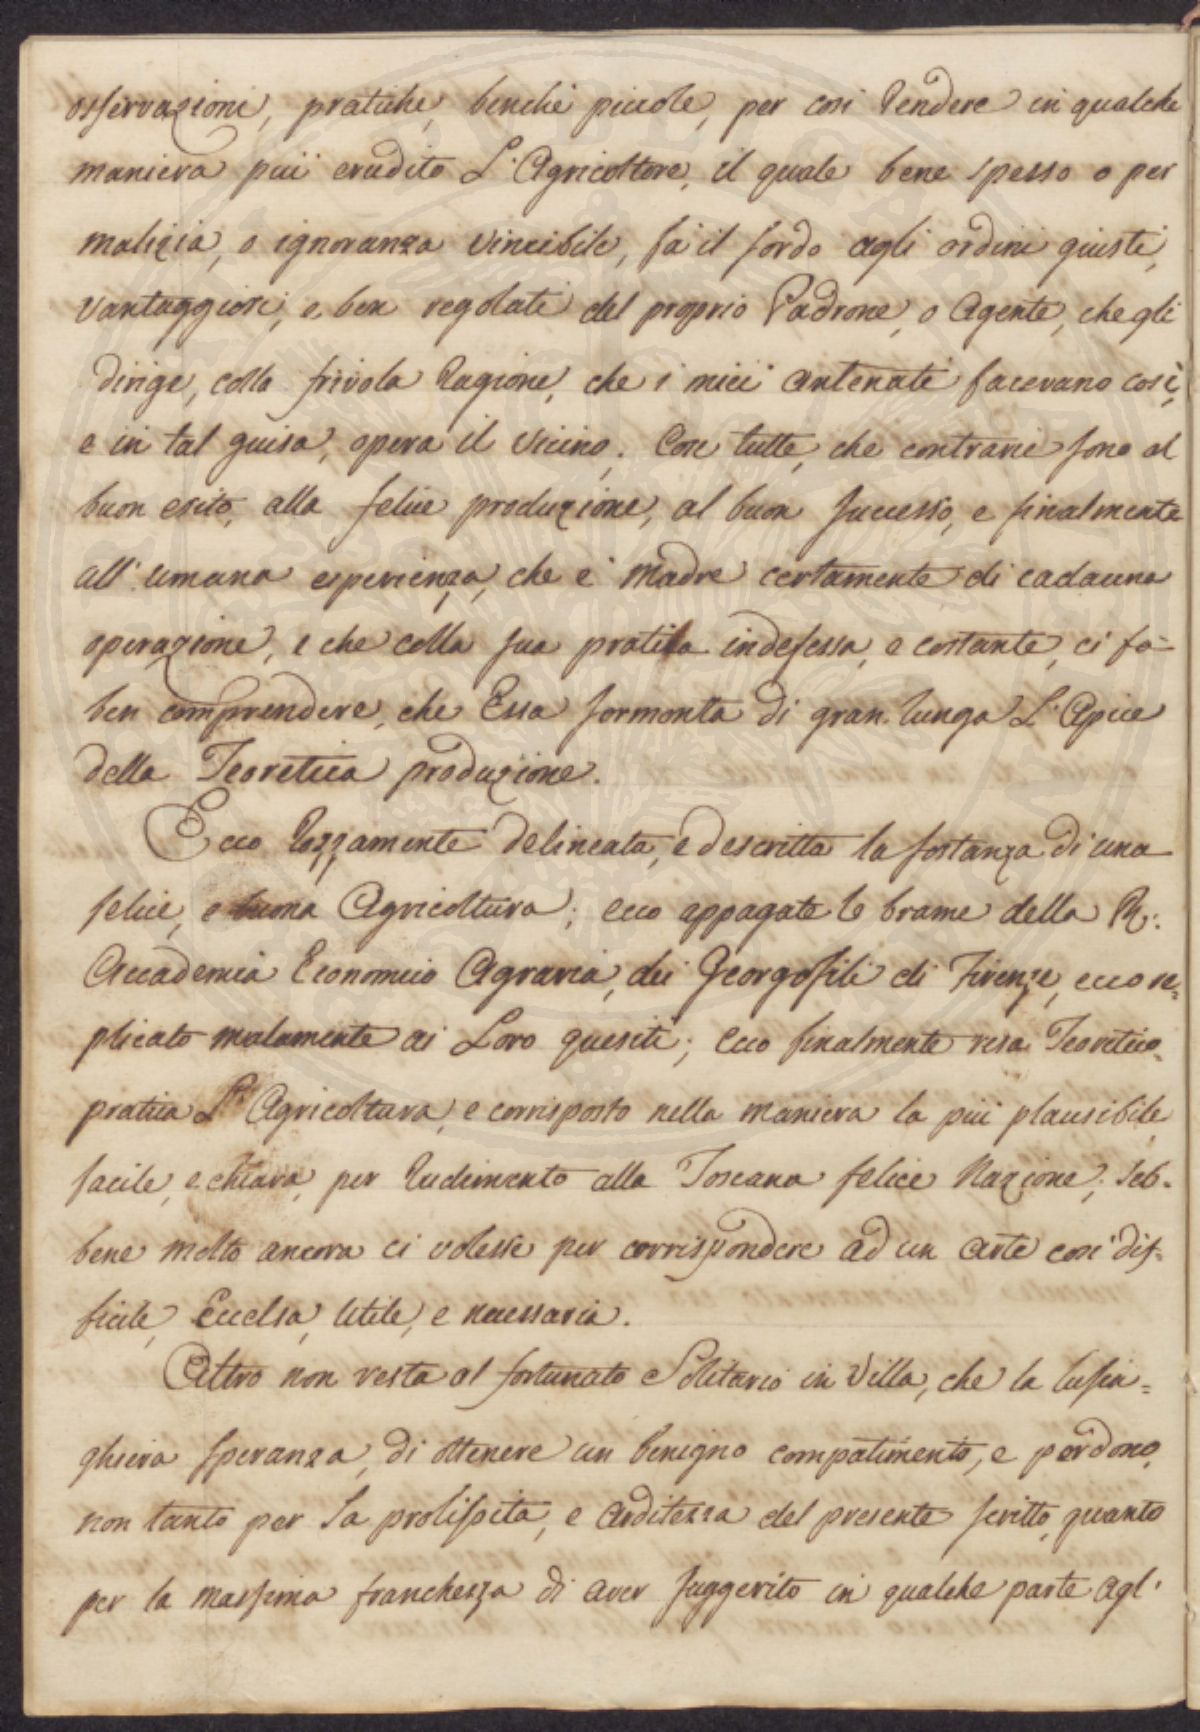 osservazioni, pratiche, benchè piccole, per cosi rendere in qualche
maniera più erudito L'Agricoltore, il quale bene spesso o per
malizia, o ignoranza vincibile, fa il sordo agli ordini giusti,
vantaggiosi, e ben regolati del proprio Padrone, o Agente, che gli
dirige, colla frivola ragione, che i miei antenati facevano così,
e in tal guisa, opera il vicino. Cose tutte, che contrarie sono al
buon esito, alla felice produzione, al buon successo, e finalmente
all'umana esperienza, che è Madre certamente di cadauna
operazione, e che colla sua pratica indefessa, e costante, ci fa
ben comprendere, che Essa sormonta di gran lunga L'Apice
della Teoretica produzione.
Ecco rozzamente delineata, e descritta la sostanza di una
felice, e buona Agricoltura; ecco appagate le brame della R:
Accademia Economico Agraria, dei Georgofili di Firenze, ecco re=
plicato malamente ai Loro quesiti; ecco finalmente resa Teoretico=
pratica L'Agricoltura, e corrisposto nella maniera la più plausibile,
facile, e chiara, per rudimento alla Toscana felice Nazione; seb=
bene molto ancora ci volesse per corrispondere ad un arte così dif=
ficile, Eccelsa, Utile, e necessaria.
Altro non resta al fortunato Solitario in Villa, che la lusin=
ghiera speranza, di ottenere un benigno compatimento, e perdono,
non tanto per la prolissità, e arditezza del presente scritto, quanto
per la massima franchezza di aver suggerito in qualche parte agl'